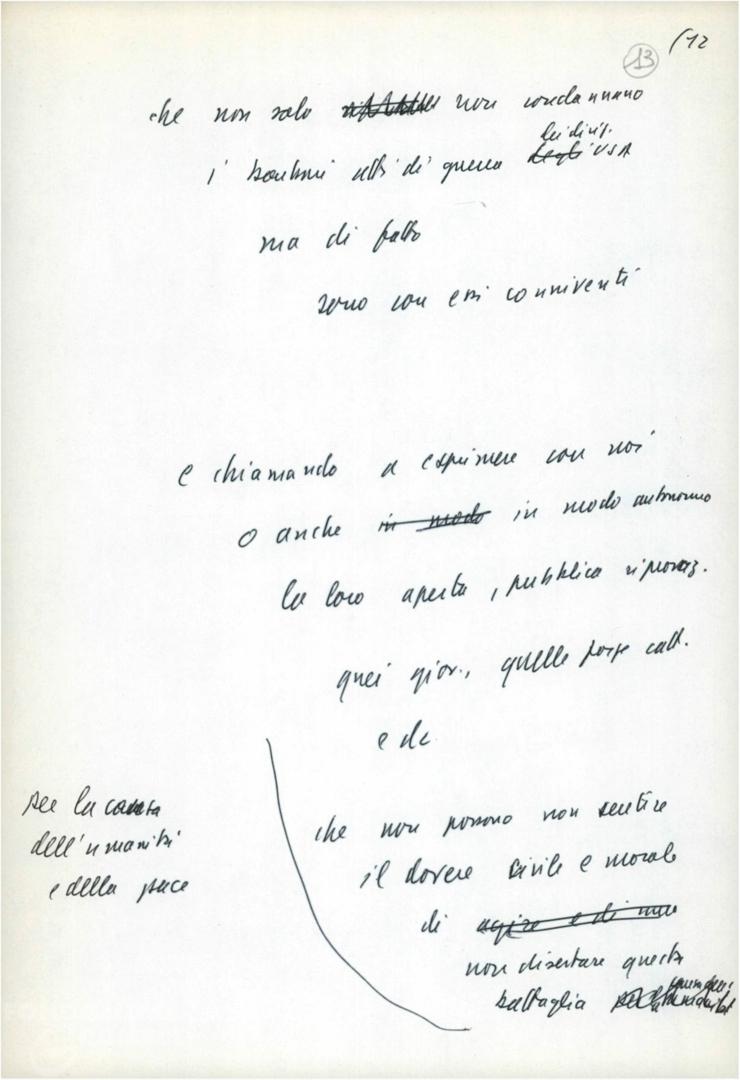 13 (12
che non solo non condannano
dei dirig.
i barbari atti di guerra degli USA
ma di fatto
sono con essi conniventi
e chiamando a esprimere con noi
o anche in modo in modo autonomo
la loro aperta, pubblica riprovaz.
quei giov., quelle forze catt.
e dc
che non possono non sentire
il dovere civile e morale
di agire e di
non disertare questa
battaglia
per la causa
dell'umanità
e della pace